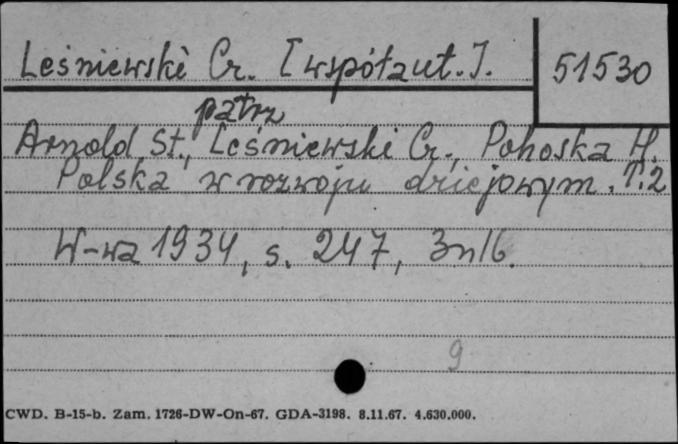 Leśniewski Cz. [współaut.].
51530
patrz
Arnold St., Leśniewski Cz., Pohoska H.
Polska w rozwoju dziejowym. T. 2
W-wa 1934, s. 247, 3nlb.
9
CWD. B-15-b. Zam. 1726-DW-On-67. GDA-3198. 8.11.67. 4.630.000.